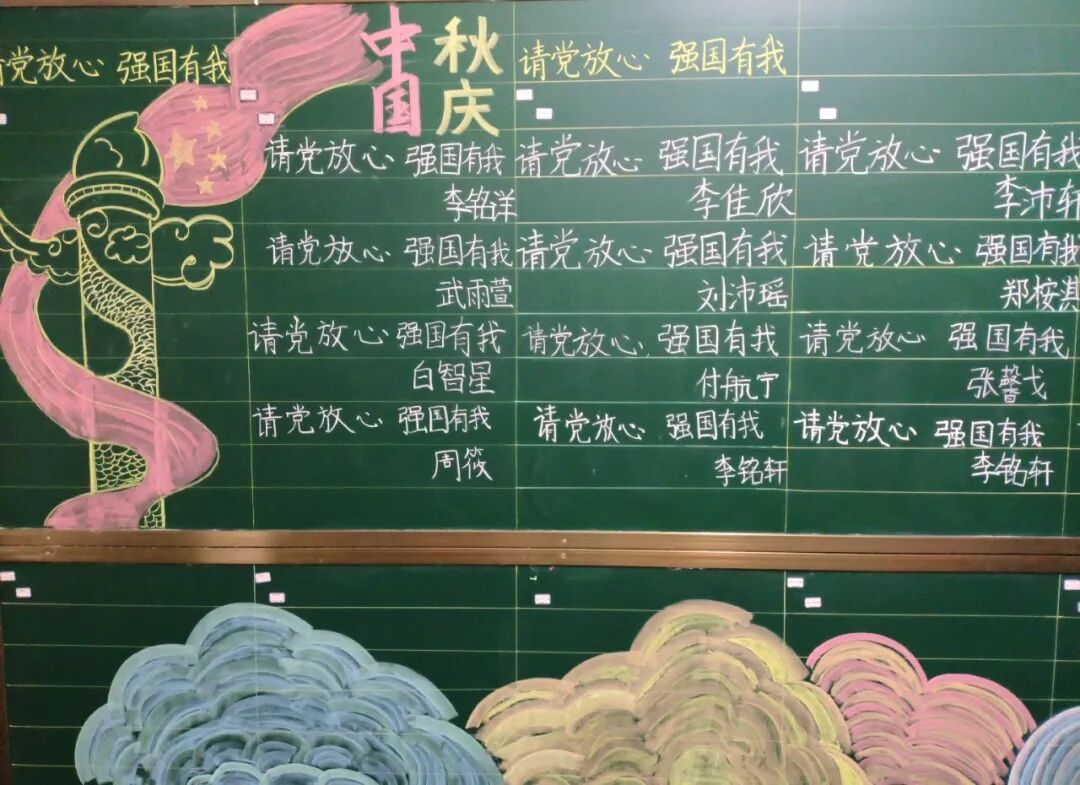 请党放心 强国有我
中国
秋庆
请党放心 强国有我
请党放心 强国有我
李铭洋
请党放心 强国有我
李佳欣
请党放心 强国有我
李沛轩
请党放心 强国有我
武雨萱
请党放心 强国有我
刘沛瑶
请党放心 强国有我
郑桉淇
请党放心 强国有我
白智星
请党放心 强国有我
付航宁
请党放心 强国有我
张馨戈
请党放心 强国有我
周筱
请党放心 强国有我
李铭轩
请党放心 强国有我
李铭轩